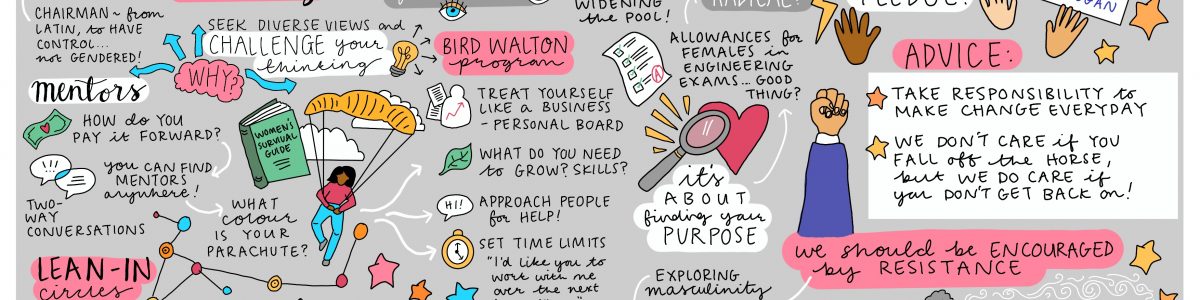 CHAIRMAN ~ from
LATIN, to HAVE
CONTROL...
not GENDERED!
SEEK DIVERSE VIEWS and
CHALLENGE your
thinking
WHY?
BIRD WALTON
program
WIDENING
the POOL!
RADICAL?
PLEDGE!
mentors
HOW do YOU
PAY it FORWARD?
you CAN FIND
MENTORS
anywhere!
TWO-
WAY
CONVERSATIONS
LEAN-IN
circles
WOMEN'S
SURVIVAL
GUIDE
WHAT
colour
IS YOUR
PARACHUTE?
TREAT YOURSELF
LIKE a BUSINESS
- PERSONAL BOARD
WHAT DO YOU NEED
to GROW? SKILLS?
HI!
APPROACH PEOPLE
for HELP!
SET TIME LIMITS
"I'd like you to
work with me
over the next
ALLOWANCES for
FEMALES in
ENGINEERING
EXAMS... GOOD
THING?
A
it's
ABOUT
finding your
PURPOSE
EXPLORING
masculinity
ADVICE:
TAKE RESPONSIBILITY to
MAKE CHANGE EVERYDAY
WE DON'T CARE if YOU
FALL off the HORSE,
but WE DO CARE if
you DON'T GET BACK on!
we should be ENCOURAGED
by RESISTANCE